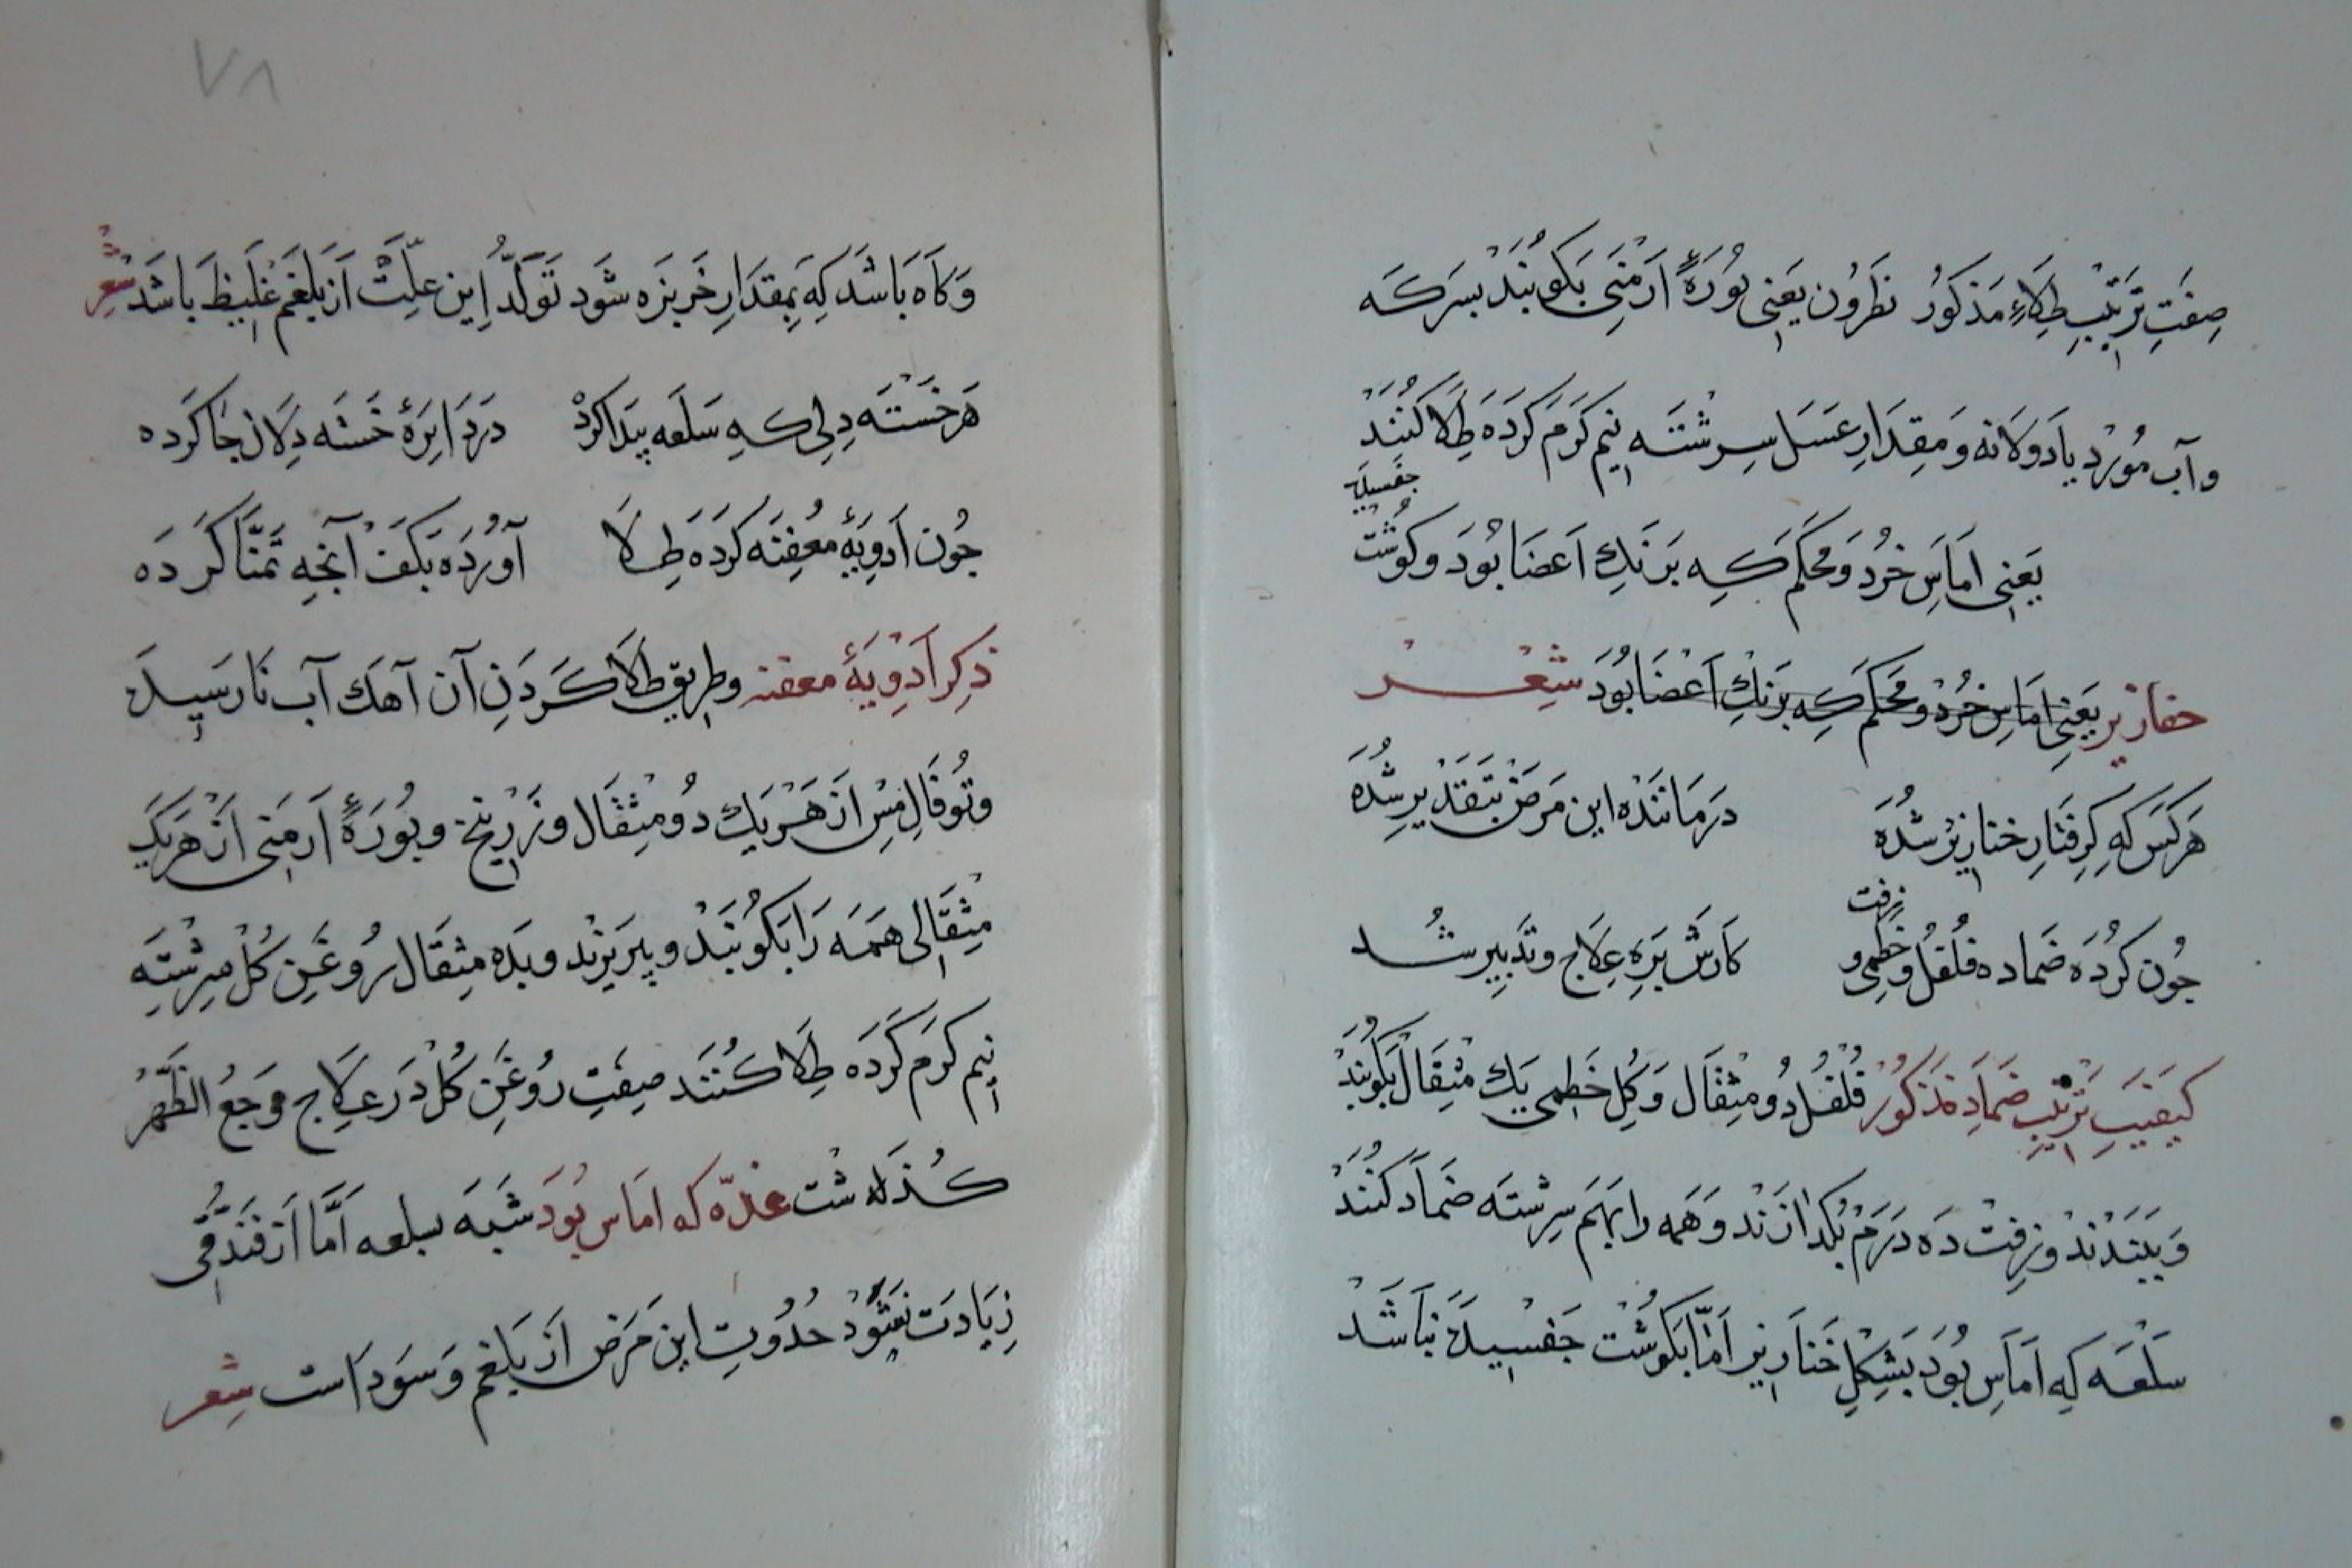 صِفَتِ تَرْتِيبِ طِلَاءِ مَذكُورْ نَطَرُون يَعنِى بُورَهٔ اَرْمَنِى بَكُوبَنْدْ بسَركَه
وآب مُوْرْد يا دَولانه وَمِقدَارِ عَسَل سِرِشْتَه نِيم كَرَم كَردَه طِلَا كُنَنْدْ
جَفسِيدَه
يَعنِى امَاسِ خُرْد وَمُحكَم كِه بَر نَكِ اَعضَا بُوَد وكوُشت
خنازير يَعنِى امَاسِ خُرْد ومُحكَم كِه بَر نَكِ اَعْضَا بُوَد شِعْر
هَركَس كِه كِرِفتَارِ خنازِيرْ شُدَه دَرمَانَنْدَه اين مَرَضْ بَتَقدِير شُدَه
زفت
جُون كَردَه ضَماد ه فُلفُل وخَطمِى و كَارَش بَرَهِ عِلَاج وتَدبِير شُد
كَيفِيَتِ تَرْتِيبِ ضَمَادِ مَذكُورْ فُلفُل دُو مِثقَال وَكُلِ خَطمِى يَك مِثقَال بَكُوبَنْدْ
وَبِيَزَنْدْ وزِفتْ دَه دَرَم بُكدازَنْد وَهَمَه را بَهَم سِرِشتَه ضَمَاد كُنَنْدْ
سَلعَه كِه اَمَاسِ بُوَد بَشِكلِ خَنَازِير اَمّا بَكوُشت جَفسِيدَه نبَاشَدْ
٧٨
وَكَاه بَاشَد كِه بَمِقدَارِ خَربزَه شَود تَوَلُّدِ اِين عِلَّتْ اَز بَلغَمِ غَلِيظ بَاشَد شِعْر
هَر خَسْتَه دِلِى كه سَلعَه پيَدا كردْ دَر دَايرَهٔ خَستَه دِلَان جَا كَرده
جُون اَدوِيَهٔ معَفِنَه كَردَه طِلَا آوُردَه بَكَفْ آنچِه تَمَنّا كَردَه
ذِكرِ اَدْوِيَهٔ معفنه وطرِيق طلَا كَردَنِ آن آهَك آب نَارَسِيدَه
وتُوفَالِ مِس از هَرْيَك دُو مِثقَال وزَرنِيخ وبُورَهٔ اَرمَنِى اَز هَريَك
مِثقَالِى هَمَه رَا بَكُوبَنْدْ وبِيَزَند وبَدَه مِثقَال رُوغَنِ كُل سِرِشتَه
نِيم كَرَم كَردَه طِلَا كُنَنَد صِفَتِ رُوغَنِ كُل دَر عِلَاج وَجَعُ الظَّهْر
كُذَشت غدّه كه امَاس بُوَد شَبَه بسلعه اَمَّا اَز فَندُقِى
زِيَادَت نشَوَدْ حُدُوثِ اين مَرَض اَز بَلغم وَسَودَاست شِعر